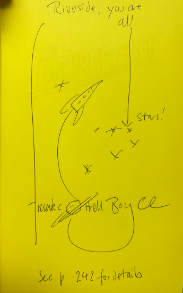 Riverside, you are
all
Stars!
Thanks
Hell Boyce
See p. 242 for details